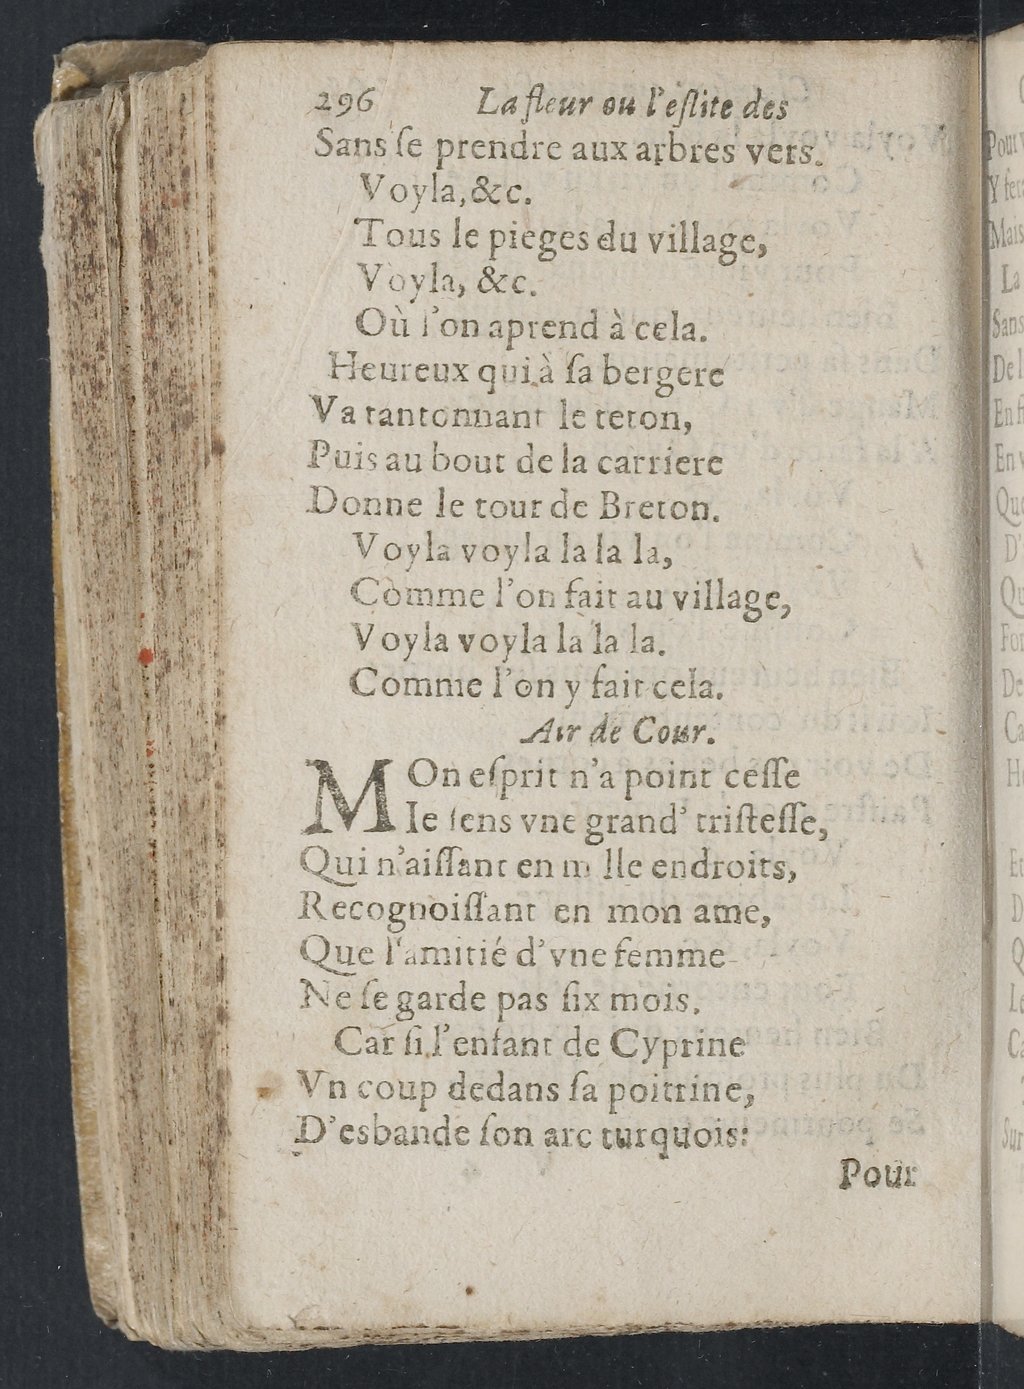 296 La fleur ou l'eſlite des
Sans ſe prendre aux arbres vers.
Voyla, &c.
Tous le pieges du village,
Voyla, &c.
Où l'on aprend à cela.
Heureux qui à ſa bergere
Va tantonnant le teton,
Puis au bout de la carriere
Donne le tour de Breton.
Voyla voyla la la la,
Comme l'on fait au village,
Voyla voyla la la la.
Comme l'on y fait cela.
Air de Cour.
MOn eſprit n'a point ceſſe
Ie ſens vne grand' triſteſſe,
Qui n'aiſſant en mille endroits,
Recognoiſſant en mon ame,
Que l'amitié d'vne femme
Ne ſe garde pas ſix mois.
Car ſi l'enfant de Cyprine
Vn coup dedans ſa poitrine,
D'esbande ſon arc turquois:
Pour